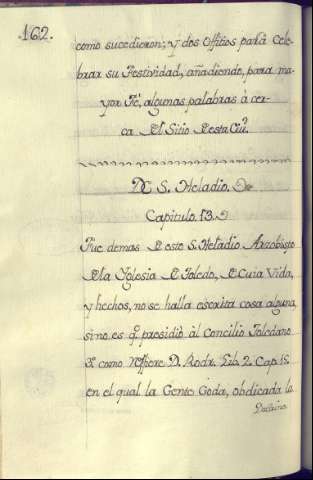 162.
como sucedieron; y dos Officios para Cele-
brar su Festividad, añadiendo, para ma-
yor Fé, algunas palabras à cer-
ca del Sitio de esta Ciu.ᵈ
De S. Heladio.
Capitulo. 13.
Fue demas de esto S. Heladio Arzobispo
de la Yglesia de Toledo, de Cuia Vida,
y hechos, no se halla escrita cosa alguna,
sino es q.ᵉ presidió àl Concilio Toledano
3.º como refiere D. Rodr. Lib. 2. Cap. 15.
en el qual la Gente Goda, obdicada la